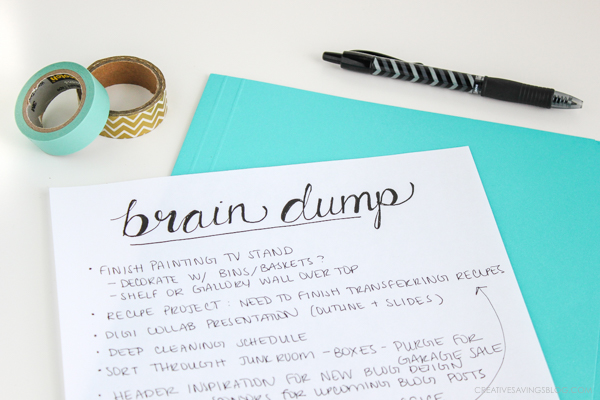 brain dump
• FINISH PAINTING TV STAND
- DECORATE W/ BINS/BASKETS?
- SHELF OR GALLORY WALL OVER TOP
• RECIPE PROJECT: NEED TO FINISH TRANSFERRING RECIPES
• DIGI COLLAB PRESENTATION (OUTLINE + SLIDES)
• DEEP CLEANING SCHEDULE
• SORT THROUGH JUNKROOM - BOXES - PURGE FOR
GARAGE SALE
• HEADER INPIRATION FOR NEW BLOG DESIGN
FOR UPCOMING BLOG POSTS
CREATIVESAVINGSBLOG